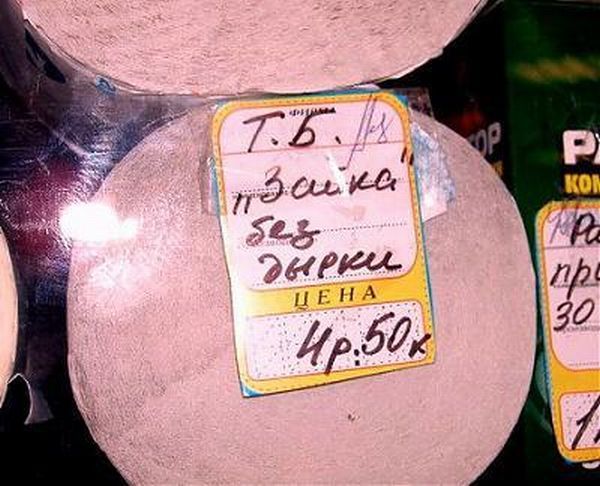 Т.Б.
„Зайка"
без
дырки
ЦЕНА
4р.50к
ОР
РА
КОМ
Ра
при
30